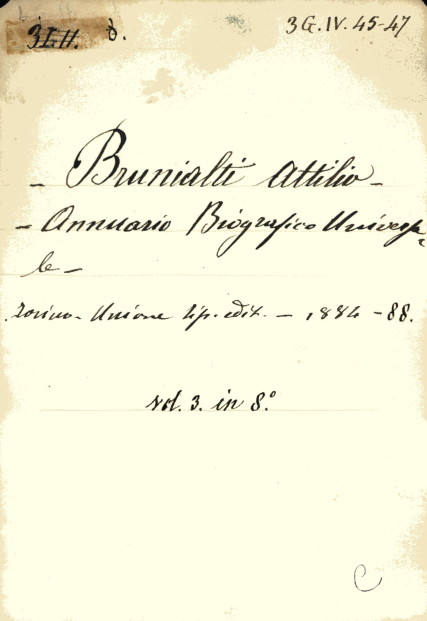 3G.IV.45-47
- Brunialti Attilio -
- Annuario Biografico Universa-
le -
Torino - Unione tip. edit. - 1884 - 88.
vol. 3. in 8.°
C